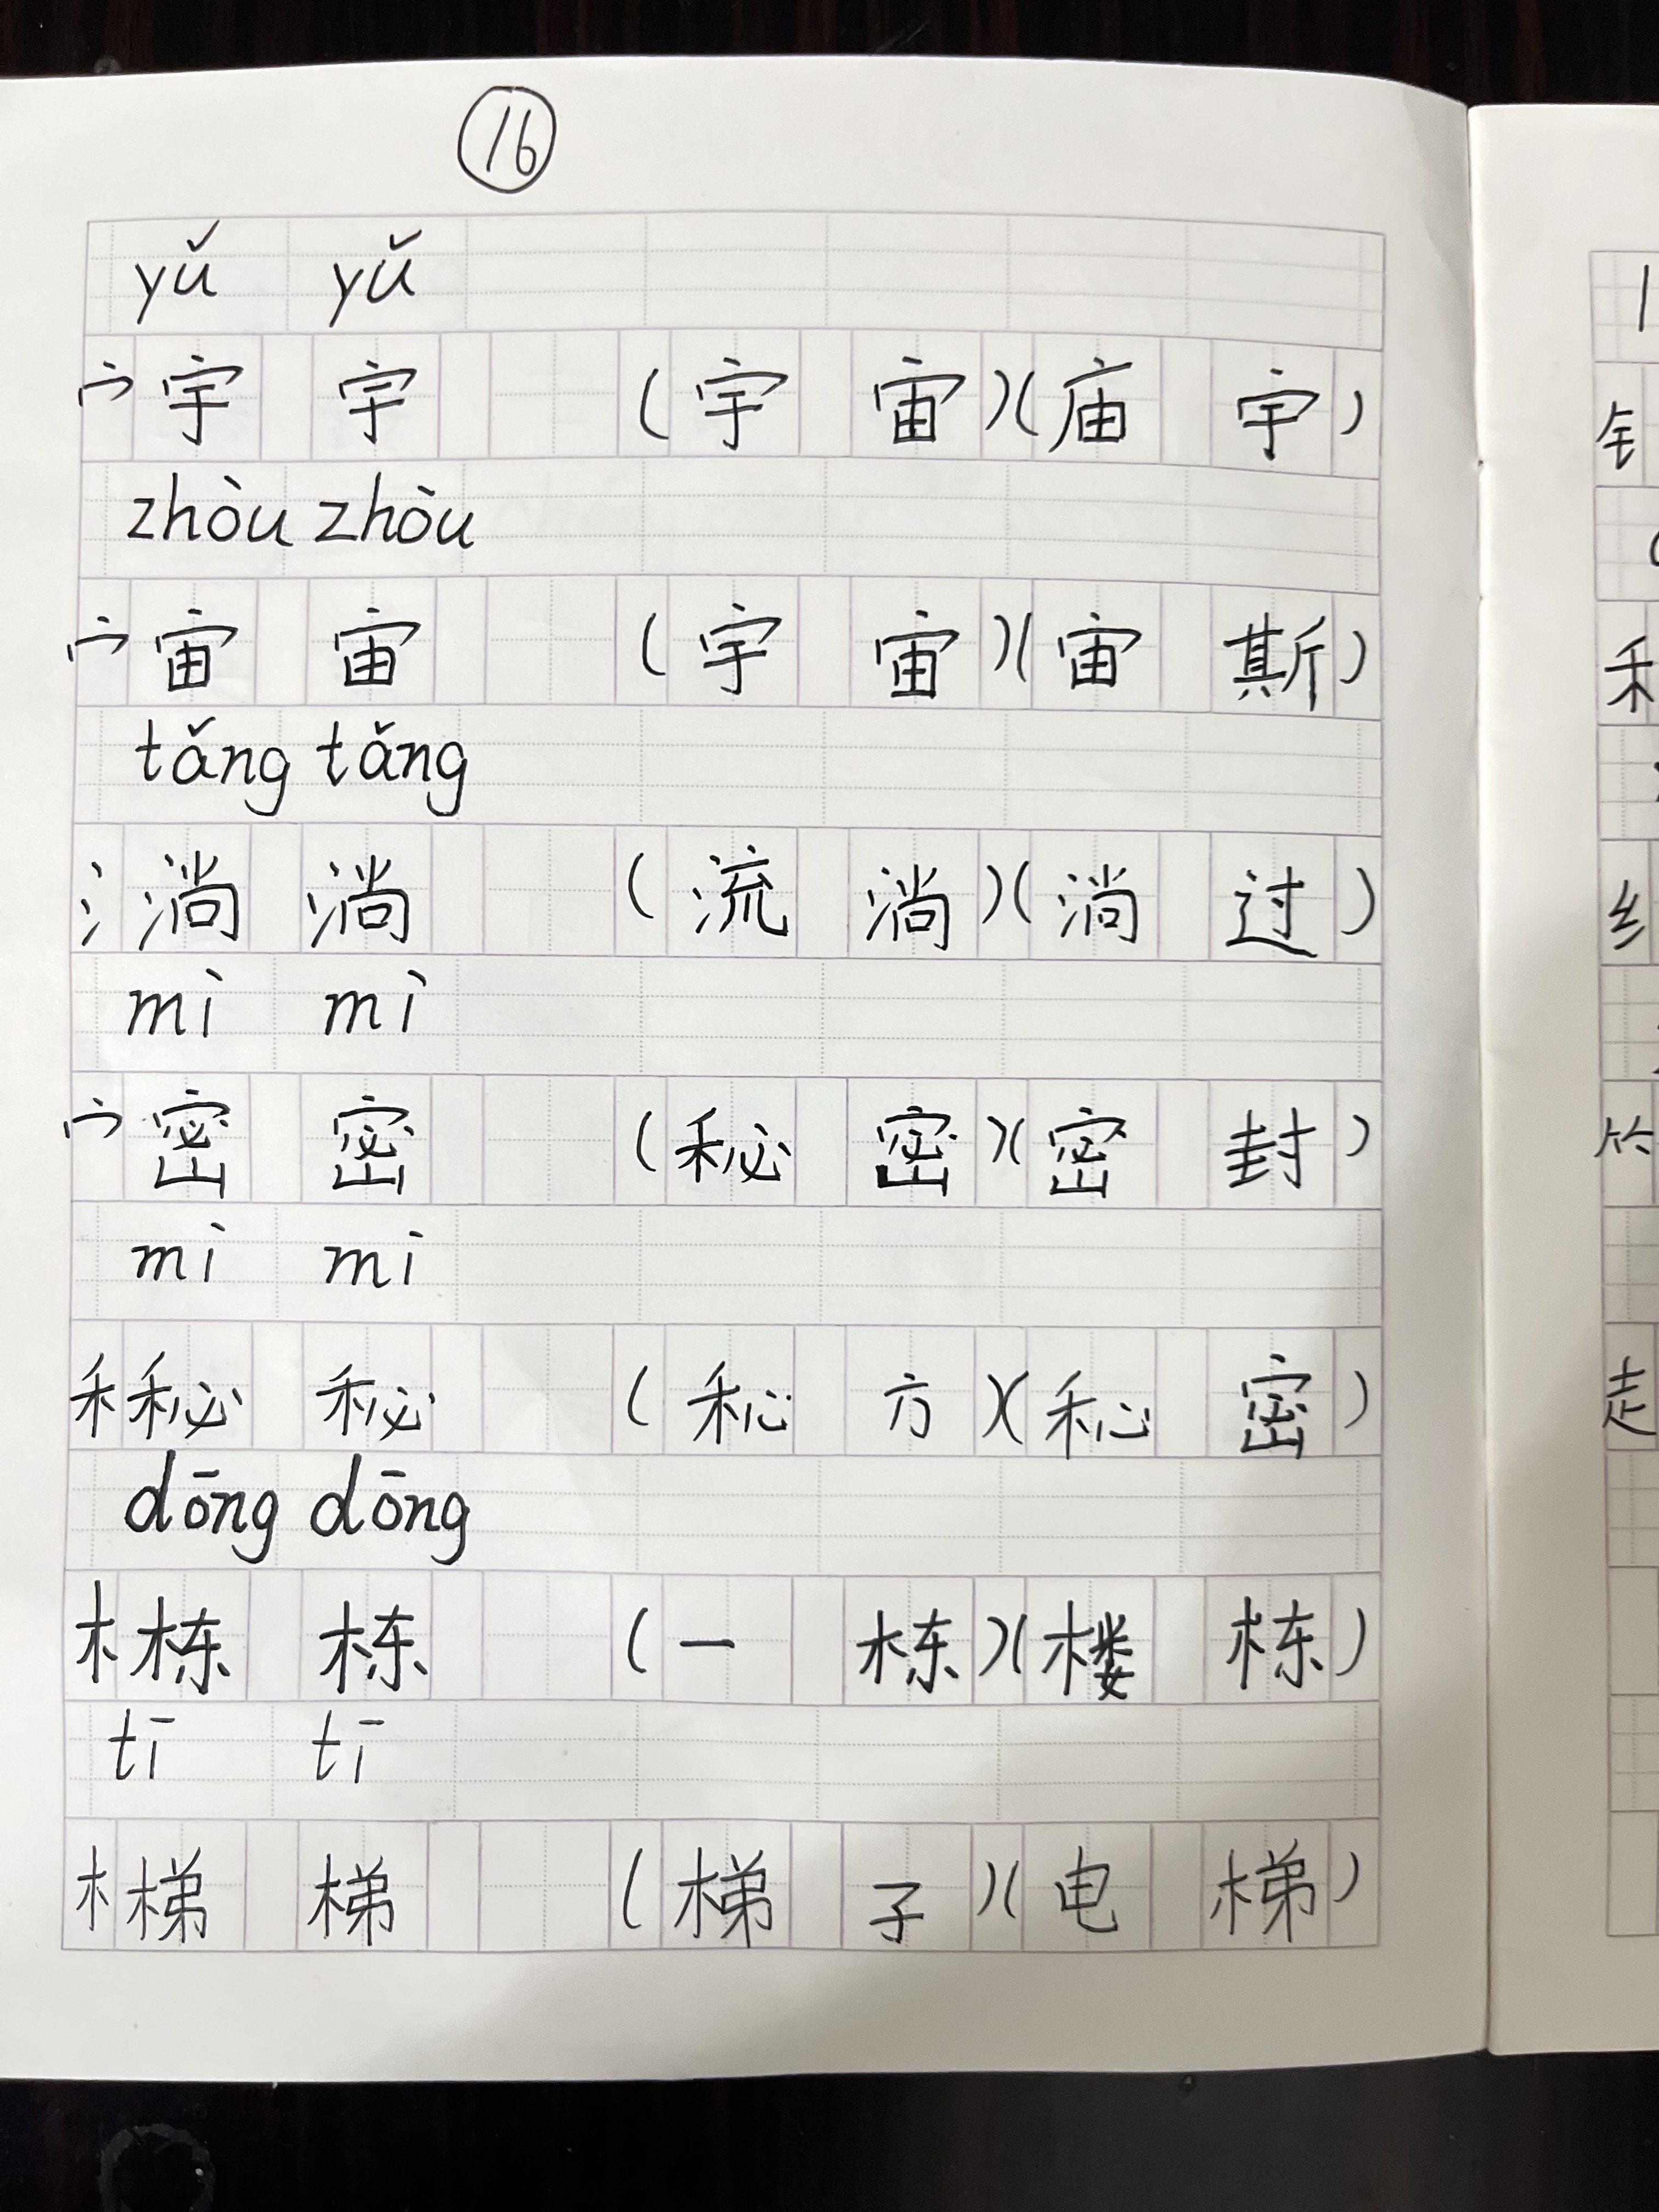 ⑯
yǔ yǔ
宀 宇 宇 (宇宙)(庙宇)
zhòu zhòu
宀 宙 宙 (宇宙)(宙斯)
tǎng tǎng
氵 淌 淌 (流淌)(淌过)
mì mì
宀 密 密 (秘密)(密封)
mì mì
禾 秘 秘 (秘方)(秘密)
dōng dōng
木 栋 栋 (一栋)(楼栋)
tī tī
木 梯 梯 (梯子)(电梯)
钅
禾
纟
⺮
走